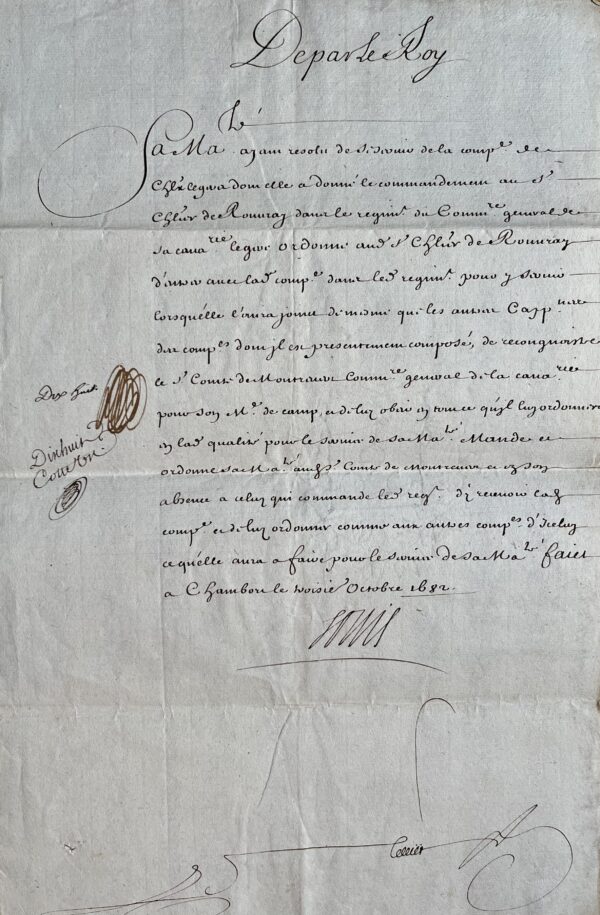 De par le Roy
Sa Ma.té ayant resolu de se servir de la comp.e de
Chev.legers dont elle a donné le commandement au S.r
Chlier de Rouvray dans le regim.t du Comm.re general de
sa cava.rie legere ordonne aud. S.r Chlier de Rouvray
d'entrer avec lad. comp.e dans led. regim.t pour y servir
lorsqu'elle l'aura joint de mesme que les autres Capp.nes
des comp.es dont il est presentement composé, de recongnoistre
le S.r Comte de Montrevel Comm.re general de la cava.rie
pour son M.e de camp, et de luy obeir en tout ce qu'il luy ordonnera
en lad. qualité pour le service de sa Ma.té Mande et
ordonne sa Ma.té aud. S.r Comte de Montrevel et en son
absence a celuy qui commande led. reg.t d'y recevoir lad.
comp.e et de luy ordonner comme aux autres comp.es d'iceluy
ce qu'elle aura a faire pour le service de sa Ma.té faict
a Chambord le troisie Octobre 1682.
Louis
Dix huit
Dixhuit
leTellier